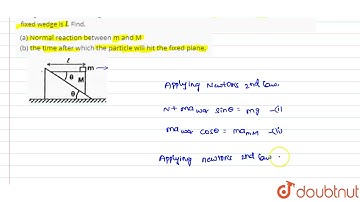 fixed wedge is l. Find.
(a) Normal reaction between m and M
(b) the time after which the particle will hit the fixed plane.
l
m
θ
M
θ
Applying Newtons 2nd law.
N + ma sinθ = mg -(i)
ma cosθ = ma -(ii)
Applying newtons 2nd law
doubtnut